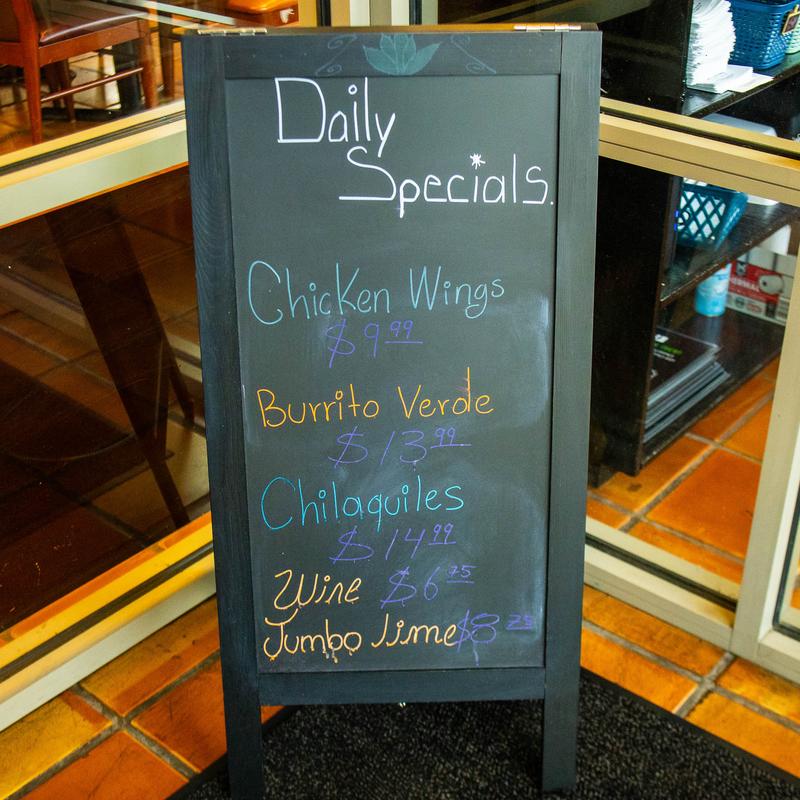 Daily
Specials.
Chicken Wings
$9.99
Burrito Verde
$13.99
Chilaquiles
$14.99
Wine $6.75
Jumbo lime $8.75